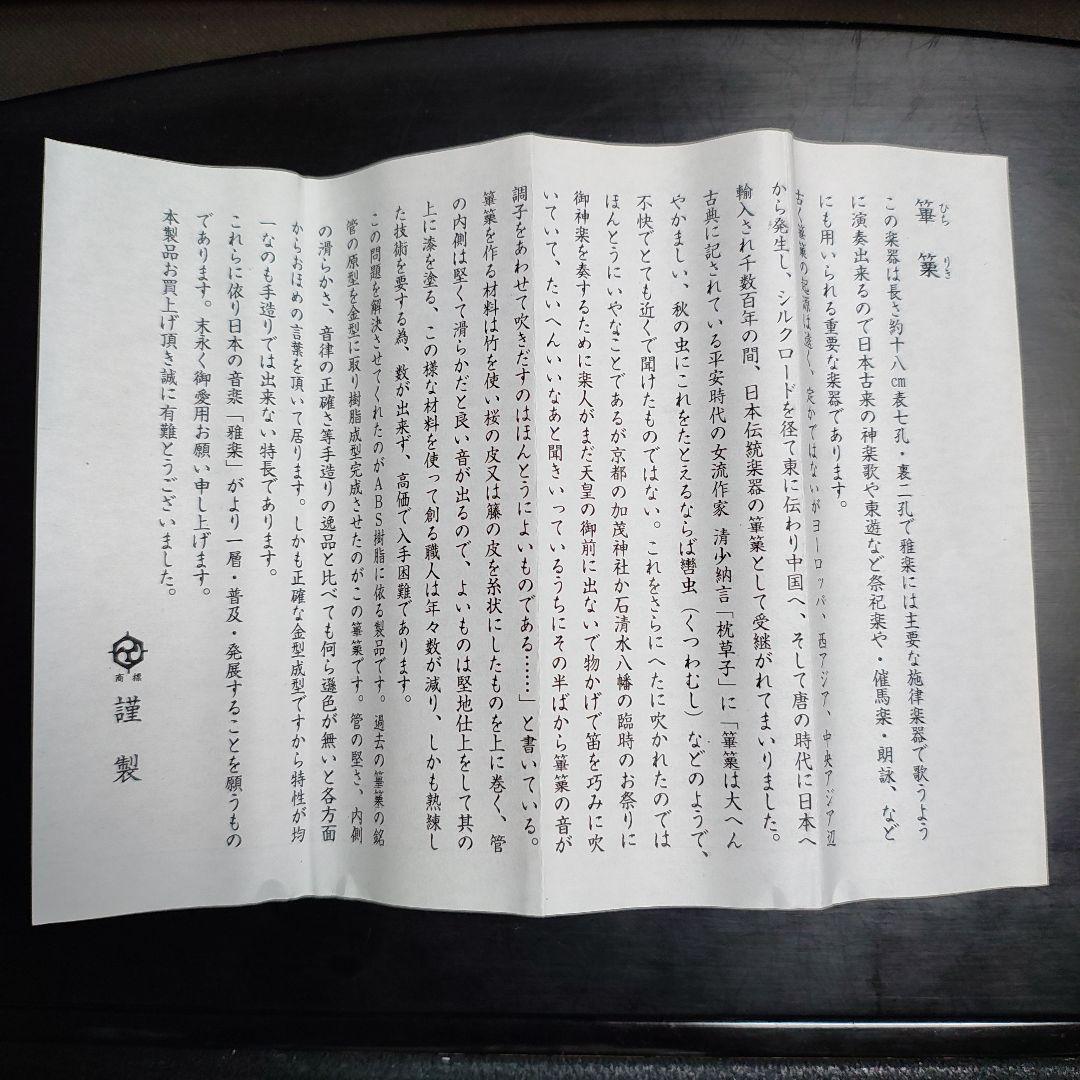 篳篥
ひちりき
この楽器は長さ約十八cm表七孔・裏二孔で雅楽には主要な施律楽器で歌うよう
に演奏出来るので日本古来の神楽歌や東遊など祭祀楽や・催馬楽・朗詠、など
にも用いられる重要な楽器であります。
古く篳篥の起源は遠く、定かではないがヨーロッパ、西アジア、中央アジア辺
から発生し、シルクロードを径て東に伝わり中国へ、そして唐の時代に日本へ
輸入され千数百年の間、日本伝統楽器の篳篥として受継がれてまいりました。
古典に記されている平安時代の女流作家 清少納言「枕草子」に「篳篥は大へん
やかましい、秋の虫にこれをたとえるならば轡虫（くつわむし）などのようで、
不快でとても近くで聞けたものではない。これをさらにへたに吹かれたのでは
ほんとうにいやなことであるが京都の加茂神社か石清水八幡の臨時のお祭りに
御神楽を奏するために楽人がまだ天皇の御前に出ないで物かげで笛を巧みに吹
いていて、たいへんいいなあと聞きいっているうちにその半ばから篳篥の音が
調子をあわせて吹きだすのはほんとうによいものである……」と書いている。
篳篥を作る材料は竹を使い桜の皮又は籐の皮を糸状にしたものを上に巻く、管
の内側は堅くて滑らかだと良い音が出るので、よいものは堅地仕上をして其の
上に漆を塗る、この様な材料を使って創る職人は年々数が減り、しかも熟練し
た技術を要する為、数が出来ず、高価で入手困難であります。
この問題を解決させてくれたのがABS樹脂に依る製品です。過去の篳篥の銘
管の原型を金型に取り樹脂成型完成させたのがこの篳篥です。管の堅さ、内側
の滑らかさ、音律の正確さ等手造りの逸品と比べても何ら遜色が無いと各方面
からおほめの言葉を頂いて居ります。しかも正確な金型成型ですから特性が均
一なのも手造りでは出来ない特長であります。
これらに依り日本の音楽「雅楽」がより一層・普及・発展することを願うもの
であります。末永く御愛用お願い申し上げます。
本製品お買上げ頂き誠に有難とうございました。
商標
謹製